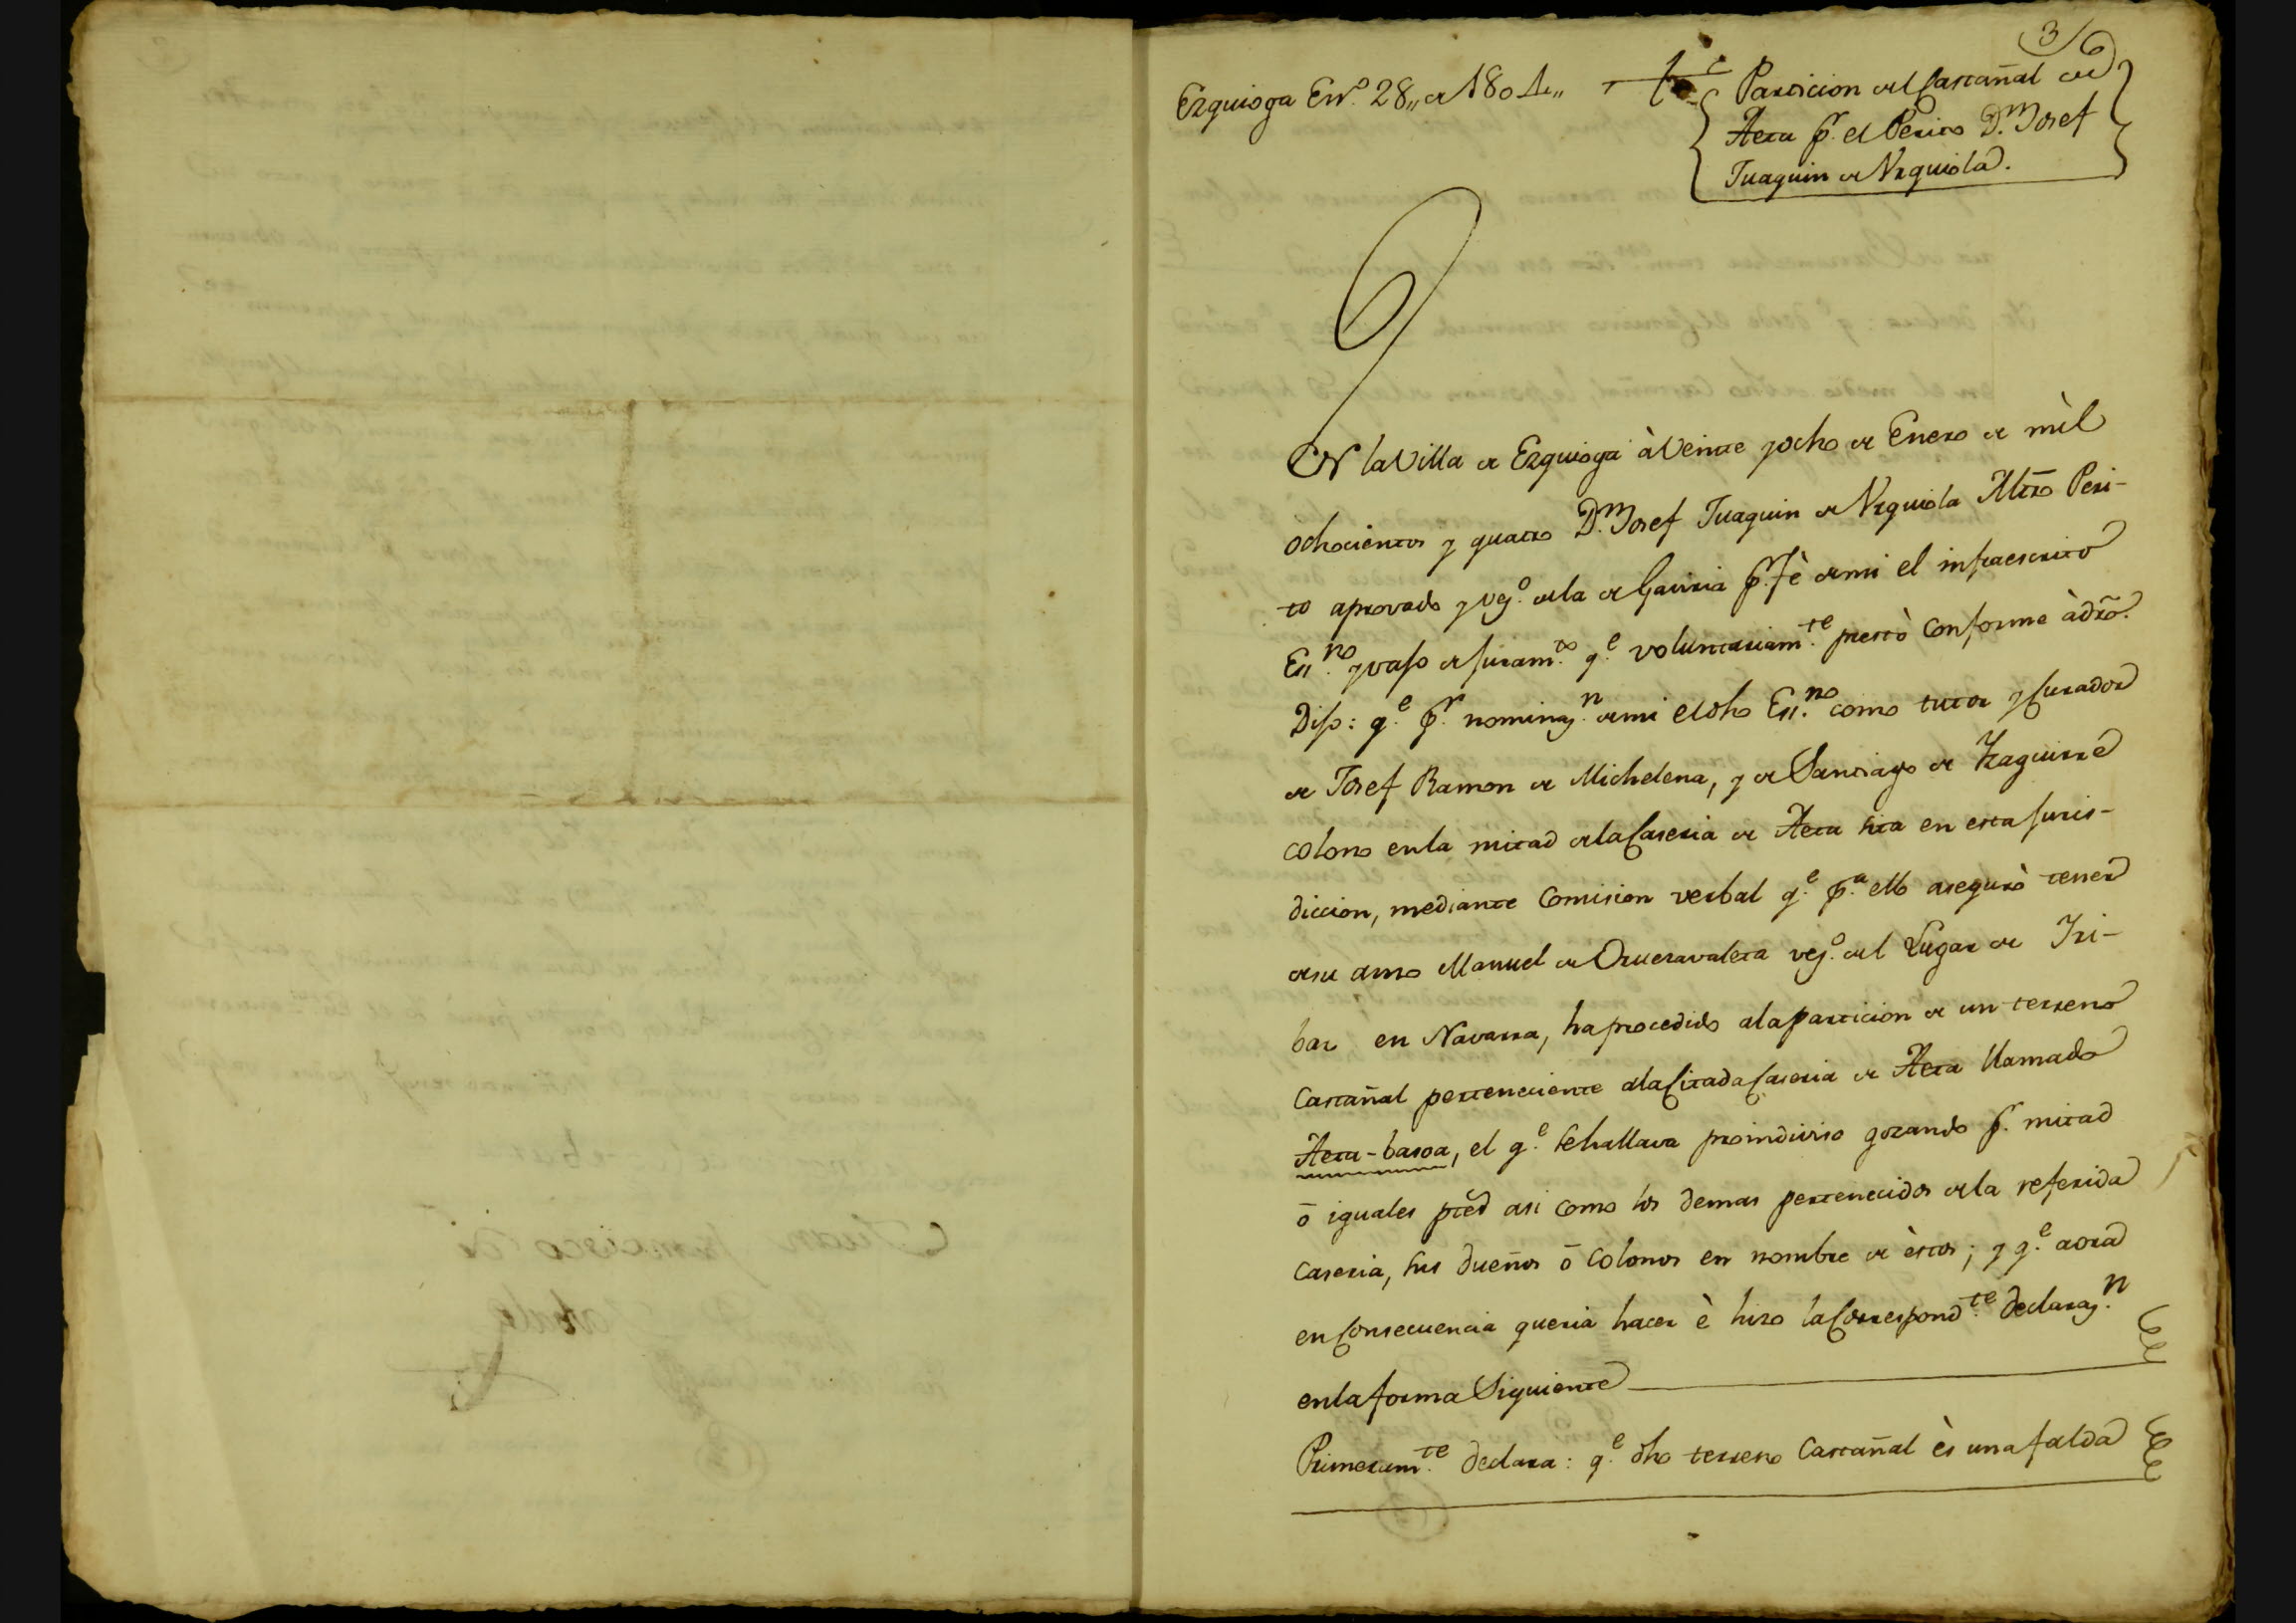 3
Ezquioga En.º 28,, de 1804,,
Particion del Castañal de
Aeta p.r el Perito D.n Josef
Juaquin de Vrquiola.
EN la Villa de Ezquioga à Veinte y ocho de Enero de mìl
ochocientos y quatro D.n Josef Juaquin de Vrquiola Mtro Peri-
to aprovado y vez.º de la de Gaviria p.r Fè de mi el infraescrito
Ess.no y vajo de juram.to q.e voluntariam.te prestò Conforme à dro.
Dijo: q.e p.r nominaz.n de mi el dho Ess.no como tutor y Curador
de Josef Ramon de Michelena, y de Santiago de Yzaguirre
colono en la mitad de la Caseria de Aeta sita en esta Juris-
diccion, mediante Comision verbal q.e p.a ello asegurò tener
de su amo Manuel de Oruezavaleta vez.º del Lugar de Yri-
bar en Navarra, ha procedido a la particion de un terreno
Castañal perteneciente a la Citada Caseria de Aeta llamado
Aeta-basoa, el q.e se hallava proindiviso gozando p.r mitad
ò iguales ptes asi como los demas pertenecidos de la referida
Caseria, sus dueños ò Colonos en nombre de èstos; y q.e aora
en Consecuencia queria hacer è hizo la Correspond.te declaraz.n
en la forma Siguiente
Primeram.te declara: q.e dho terreno Castañal ès una falda